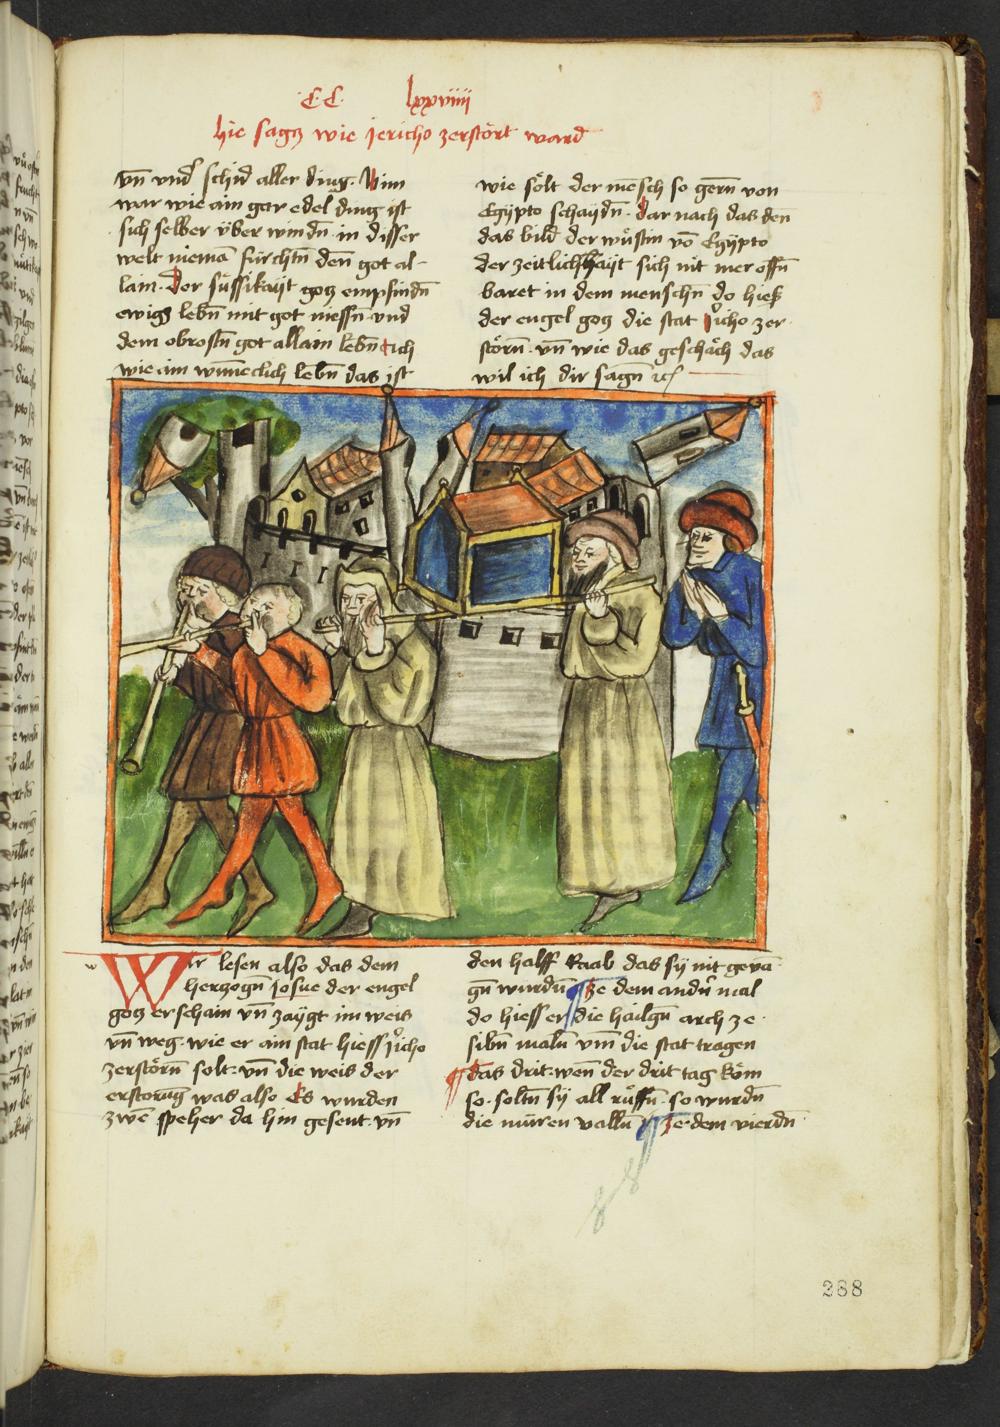 C.C. lxxviiii
hie sagz wie jericho zerstört ward
vn̄ vnd schid aller ding. Nim
war wie ain gar edel ding ist
sich selber v̈ber windn̄. in disser
welt niemā fürchtn̄ den̄ got al-
lain. der süssikäit gotz empfindn̄
ewigs lebn̄ mit got niessn̄ vnd
dem obrosn̄ got allain lebn̄ sich
wie ain wun̄eclich lebn̄ das ist
wie sölt der mēsch so gern̄ von
Egypto schaydn̄. dar nach das den̄
das bild der wüstin vō Egypto
der zeitlichhäit sich nit mer offn̄
baret in dem menschn̄ do hieß
der engel gotz die stat Jr̓icho zer-
störn̄. vn̄ wie das geschäch das
wil ich dir sagn̄ ꝛc
Wir lesen also das dem
herzogn̄ Josue der engel
gotz erschain vn̄ zaÿgt im weis
vn̄ weg. wie er ain stat hiess Jr̓icho
zerstörn̄ solt: vn̄ die weis der
erstorūg was also Es wurden
zwē speher da hin gesent. vn̄
den halff Raab das sÿ nit gevā-
gn̄ wurdn̄ ¶ Ze dem andn̓ mal
do hiess er die hailgn̄ arch ze
sibn̄ maln̄ vm̄ die stat tragen
¶ das drit: wen̄ der drit tag köm
so. soltn̄ sÿ all rüffn̄. so wurdn̄
die mūren valln̄ ¶ Ze dem vierdn̄
288